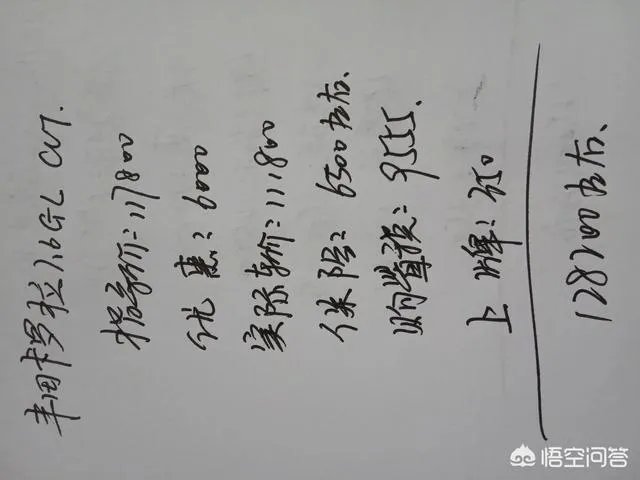 丰田卡罗拉1.6GL CVT.
指导价:117800
优惠:6000
实际车价:111800
保险:6500左右、
购置税:9555.
上牌:350
128200左右、
悟空问答